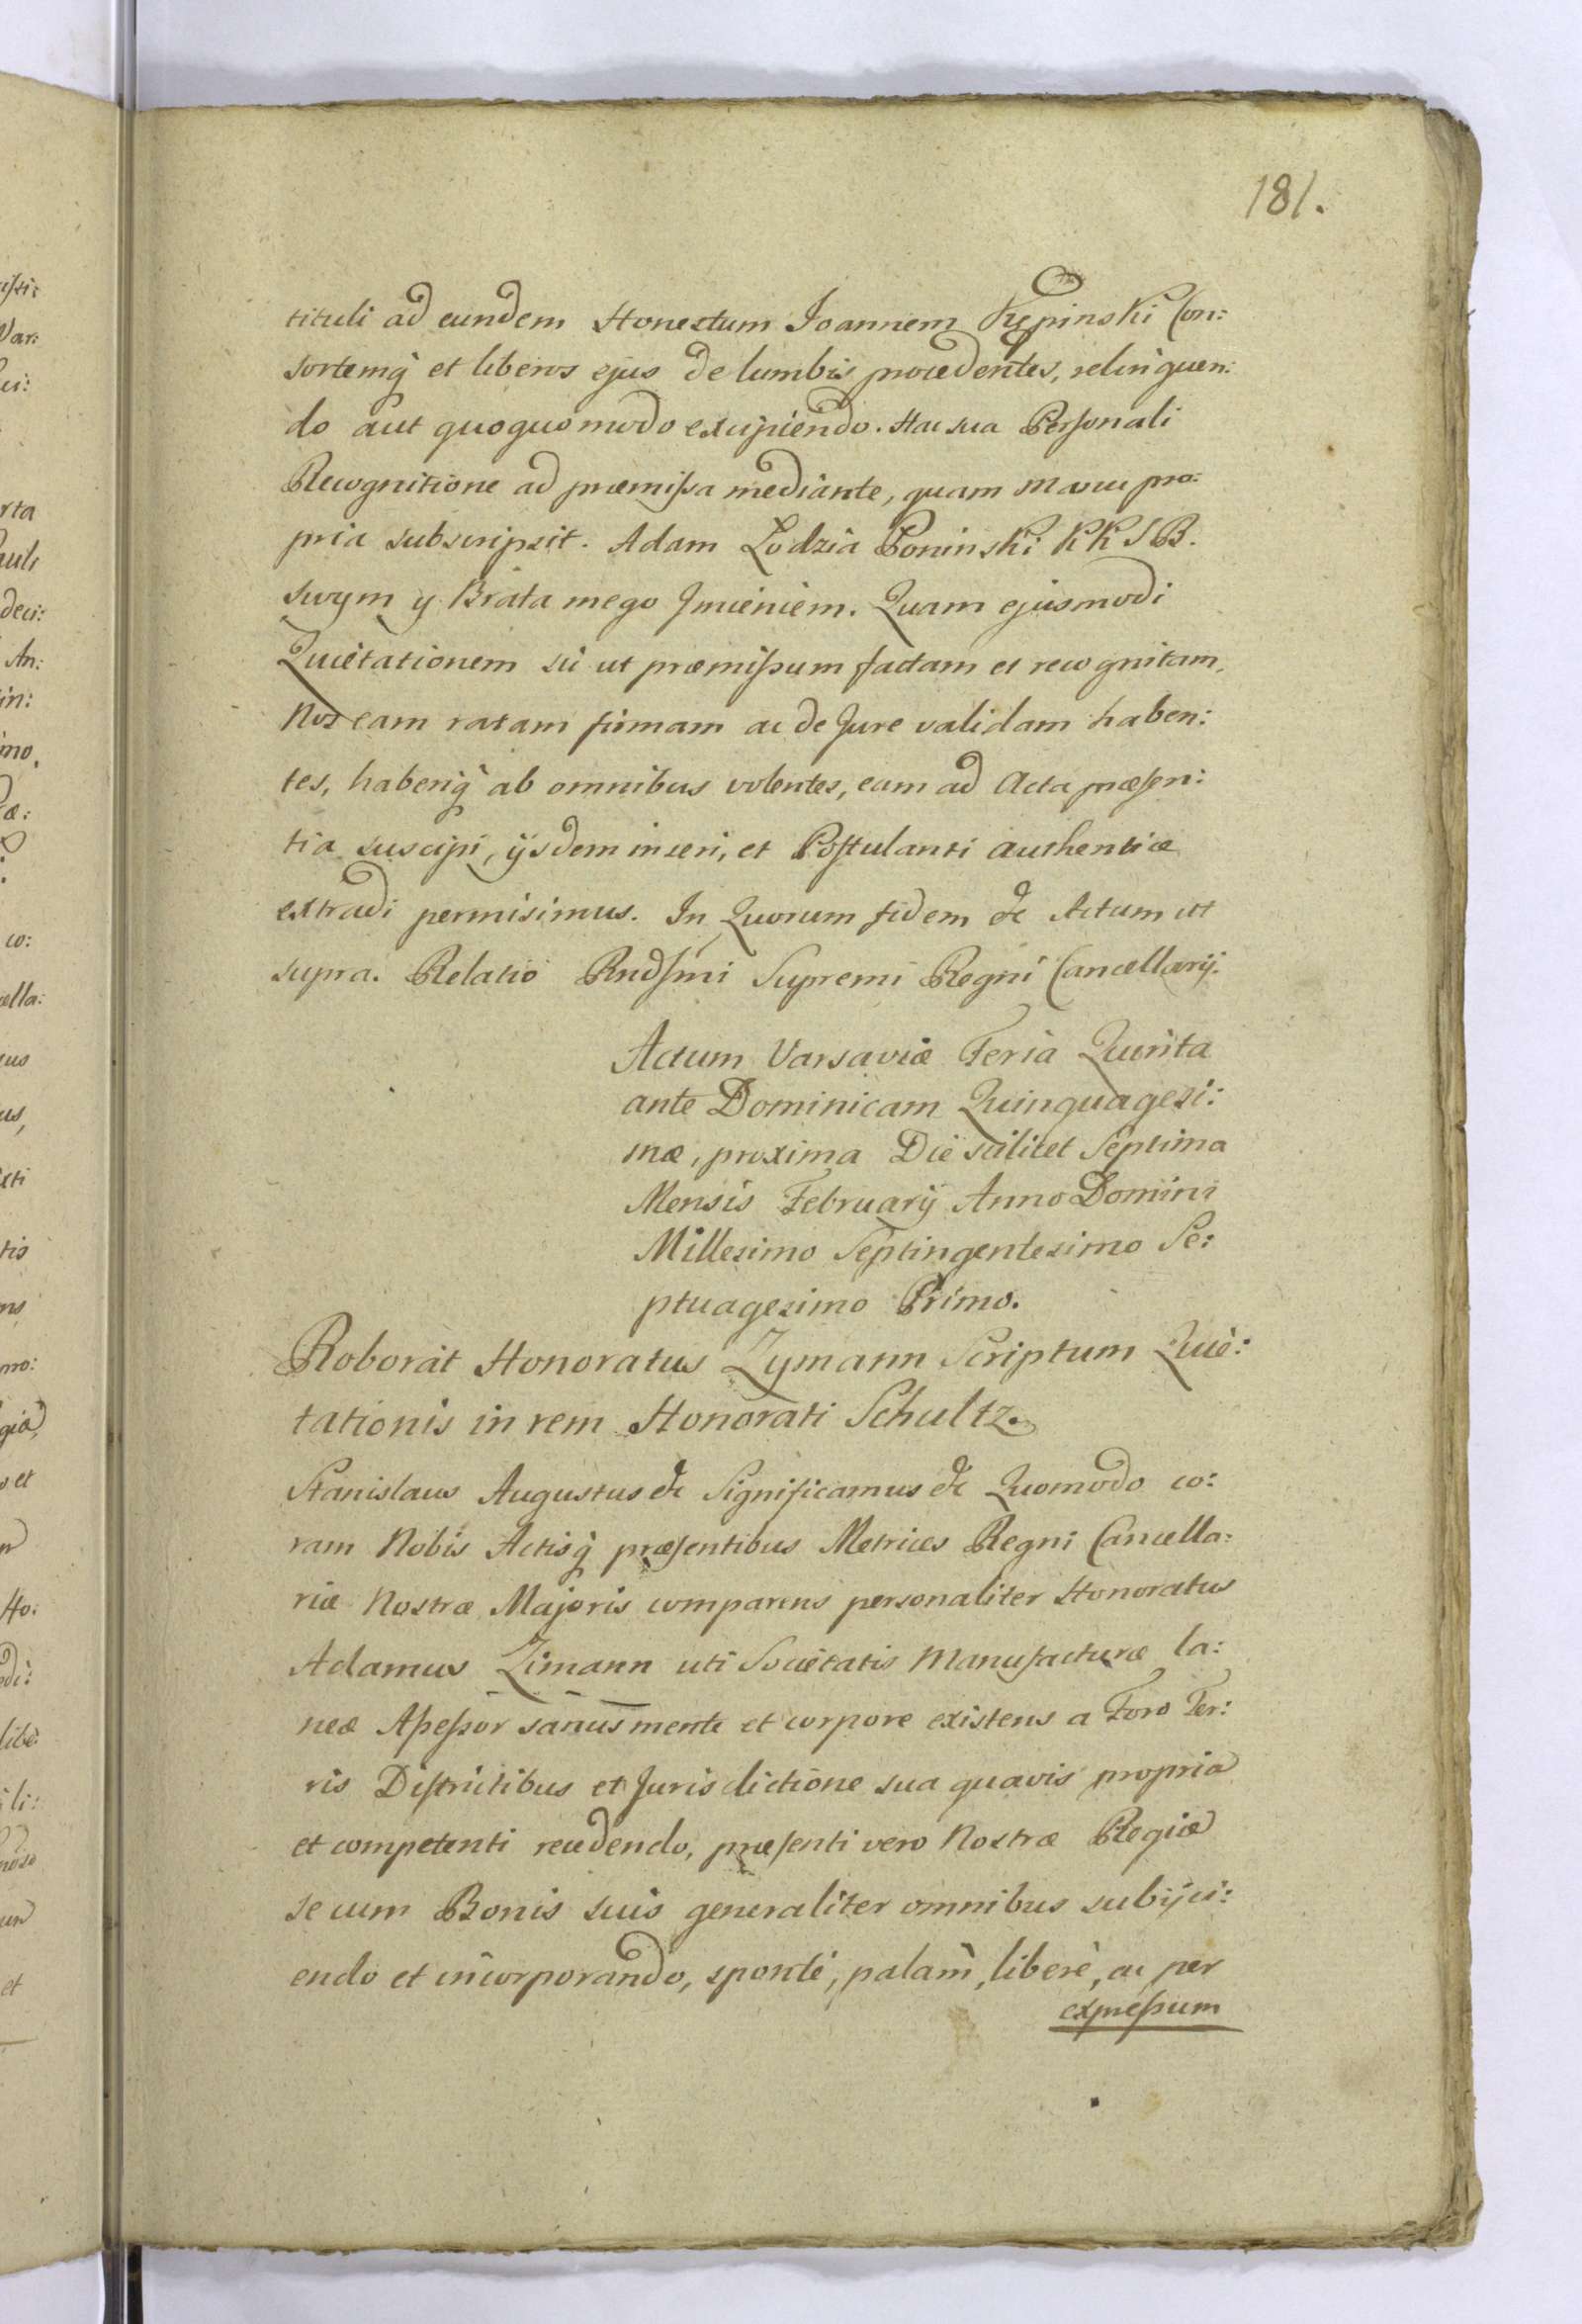 181.
tituli ad eundem Honestum Joannem Kępinski Con:
sortemq̀ et liberos ejus de lumbis procedentes, relinquen:
do aut quoquomodo excipiendo. Hac sua Personali
Recognitione ad præmissa mediante, quam Manu pro:
pria subscripsit. Adam Lodzia Poninski KKJB.
swym y Brata mego Jmieniem. Quam ejusmodi
Quietationem sic ut præmissum factam et recognitam,
Nos eam ratam firmam ac de Jure validam haben:
tes, haberiq̀ ab omnibus volentes, eam ad Acta præsen:
tia suscipi, ijsdem inseri, et Postulanti authentice
extradi permisimus. In Quorum fidem &c Actum ut
supra. Relatio Rndssmi Supremi Regni Cancellarij.
Actum Varsaviæ Feria Quinta
ante Dominicam Quinquagesi:
mæ, proxima Die scilicet Septima
Mensis Februarij Anno Domini
Millesimo Septingentesimo Se:
ptuagesimo Primo.
Roborat Honoratus Zymann Scriptum Quie:
tationis in rem Honorati Schultz.
Stanislaus Augustus &c Significamus &c Quomodo co:
ram Nobis Actisq̀ præsentibus Metrices Regni Cancella:
riæ Nostræ Majoris comparens personaliter Honoratus
Adamus Zimann uti Societatis Manufacturæ la:
neæ Assessor sanus mente et corpore existens a Foro Ter:
ris Districtibus et Jurisdictione sua quavis propria
et competenti recedendo, præsenti vero Nostræ Regiæ
se cum Bonis suis generaliter omnibus subijci:
endo et incorporando, sponte, palam, libere, ac per
expressum